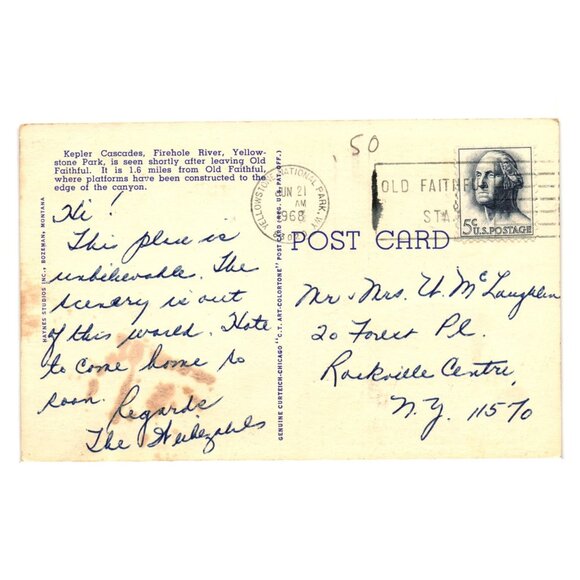 Kepler Cascades, Firehole River, Yellow-
stone Park, is seen shortly after leaving Old
Faithful. It is 1.6 miles from Old Faithful,
where platforms have been constructed to the
edge of the canyon.
Hi!
This place is
unbelievable. The
scenery is out
of this world. Hate
to come home so
soon. Regards
The
HAYNES STUDIOS INC., BOZEMAN, MONTANA
GENUINE CURTEICH-CHICAGO "C.T. ART-COLORTONE" POST CARD (REG. U.S. PAT. OFF.)
.50
YELLOWSTONE NATIONAL PARK, WY
JUN 21
AM
1968
OLD FAITHFUL
STA
5¢ U.S. POSTAGE
POST CARD
Mr. Mrs. W. McLaughlin
20 Forest Pl.
Rockville Centre,
N.Y. 11570